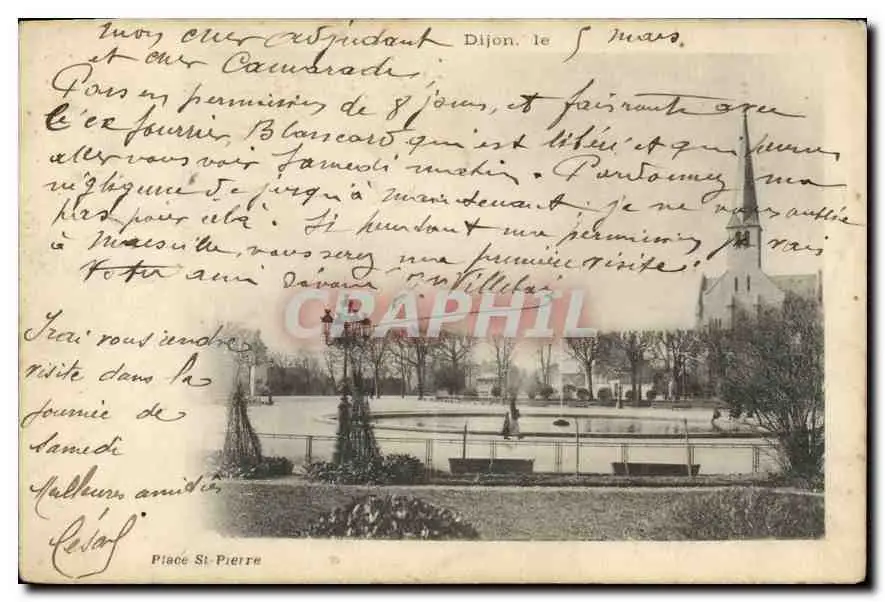 Mon cher adjudant Dijon. le 5 mars.
et cher Camarade,
Pars en permission de 8 jours, et faisant route avec
l'ex fourrier Blancard qui est libéré et qui pense
aller vous voir Samedi matin. Pardonnez ma
négligence de jusqu'à maintenant: je ne vous oublie
pas pour cela. Si pendant ma permission je vais
à Marseille, vous serez ma première visite.
Votre ami
CPARAPHIL
J'irai vous rendre
visite dans la
journée de
Samedi
Meilleures amitiés
César
Place St-Pierre